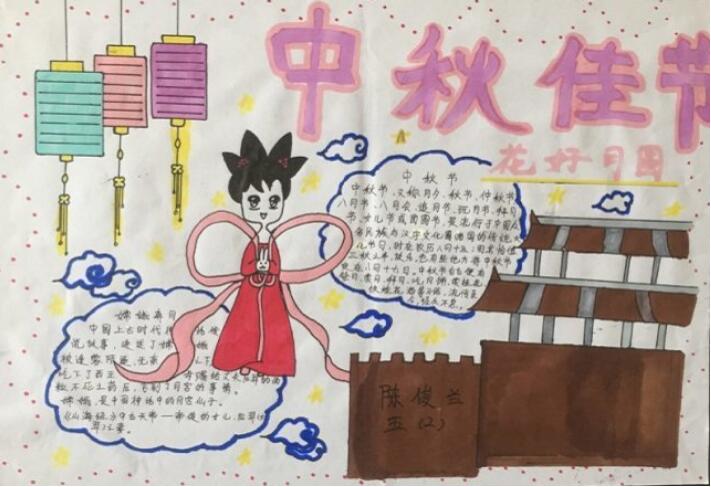 中秋佳节
花好月圆
中秋节
中秋节,又称月夕、秋节、仲秋节
八月节、八月会、追月节、玩月节、拜月
节、女儿节或团圆节,是流行于中国众
多民族与汉字文化圈诸国的传统文
化节日,时在农历八月十五;因其恰值
三秋之半,故名,也有些地方将中秋节
定在八月十六日。中秋节自古便有
祭月、赏月、拜月、吃月饼、赏桂花、
饮桂花酒等习俗,流传至
今,经久不息。
嫦娥奔月
中国上古时代
说故事,讲述了嫦娥
被逢蒙所逼,无奈
吃下了西王
粒不死之药后,
嫦娥,是中国神话中的月宫仙子。
陈俊兰
五(2)